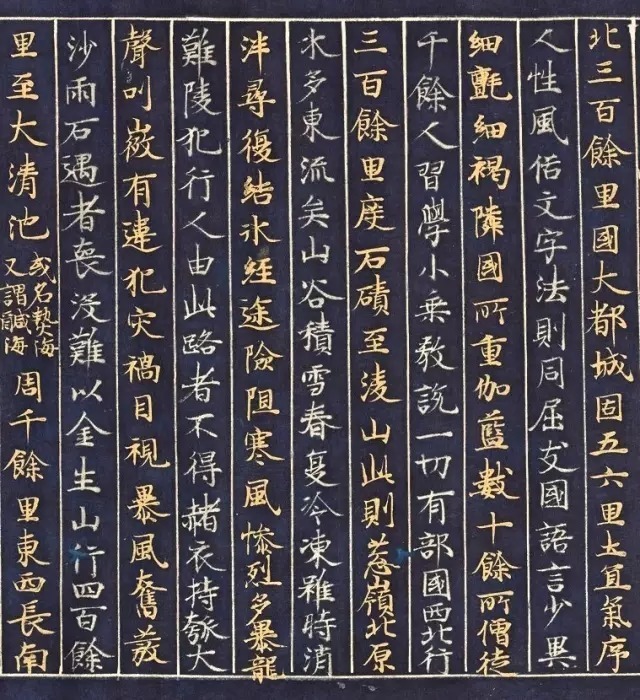 北三百餘里國大都城固五六里土宜氣序
人性風俗文字法則同屈支國語言少異
細氎細褐隣國所重伽藍數十餘所僧徒
千餘人習學小乘教說一切有部國西北行
三百餘里度石磧至淩山此則葱嶺北原
水多東流矣山谷積雪春夏冷凍雖時消
泮尋復結氷經途險阻寒風慘烈多暴龍
難陵犯行人由此路者不得赭衣持瓠大
聲叫微有違犯灾禍目視暴風奮發
沙雨石遇者喪沒難以金生山行四百餘
里至大清池或名熱海又謂鹹海周千餘里東西長南